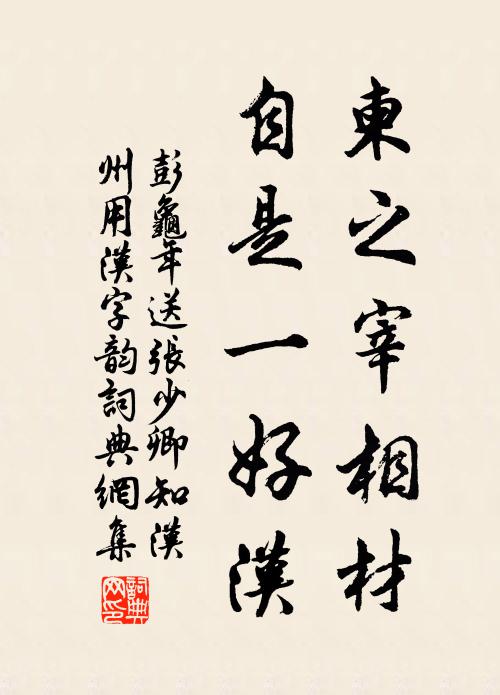 東之宰相材
自是一好漢
彭龜年送張少卿知漢
州用漢字韵詞典網集
詞典
网印